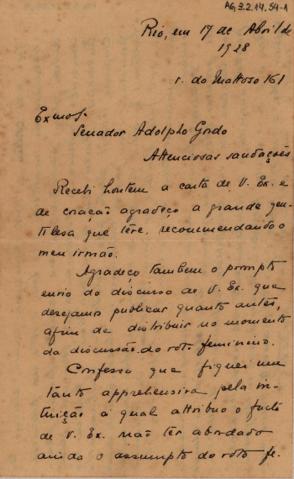 AG,3.2.14,54-1
Rio, em 17 de Abril de
1928
r. do Mattoso 161
Exmo Sr.
Senador Adolpho Gordo
Attenciosas saudações
Recebi hontem a carta de V. Ex. e
de coração agradeço a grande gen-
tilesa que têve, recommendando o
meu irmão.
Agradeço tambem o prompto
envio do discurso de V. Ex. que
desejamos publicar quanto antes,
afim de distribuir no momento
da discussão do voto feminino.
Confesso que fiquei um
tanto apprehensiva pela in-
tuição á qual attribuo o facto
de V. Ex. não têr abordado
ainda o assumpto do voto fe-